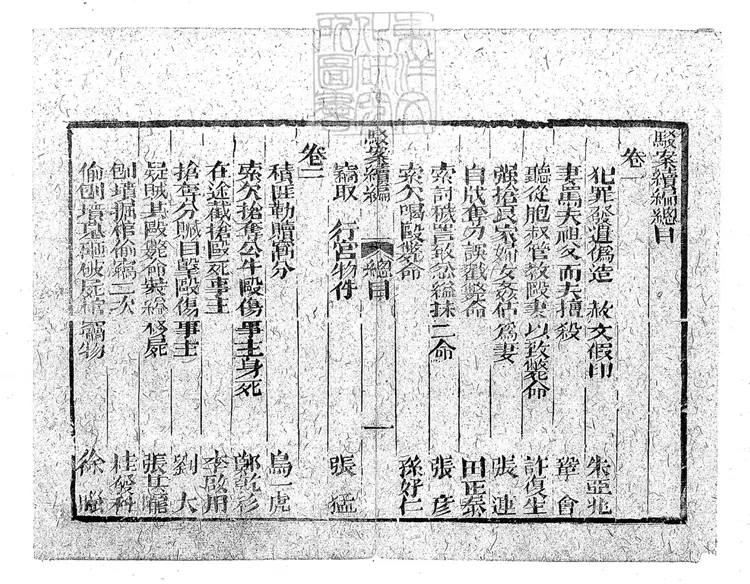 駁案續編總目
卷一
犯罪發遣偽造 赦文假印 朱亞兆
妻罵夫祖父而夫擅殺 鞏會
聽從胞叔管教毆妻以致斃命 許復生
強搶良家婦女姦佔為妻 張連
自戕奪刀誤戳斃命 田正泰
索討穢詈致忿縊抹二命 張彥
索欠喝毆斃命 孫好仁
駁案續編 總目 一
竊取 行宮物件 張猛
卷二
積匪勒贖窩分 烏一虎
索欠搶奪公牛毆傷事主身死 鄭乾彩
在途截搶毆死事主 李啟用
搶奪分贓目擊毆傷事主 劉大
疑賊甚毆斃命裝縊移屍 張其龍
刨墳掘棺偷竊二次 桂發科
偷刨墳墓砸破屍棺竊物 徐
東洋文化研究所圖書